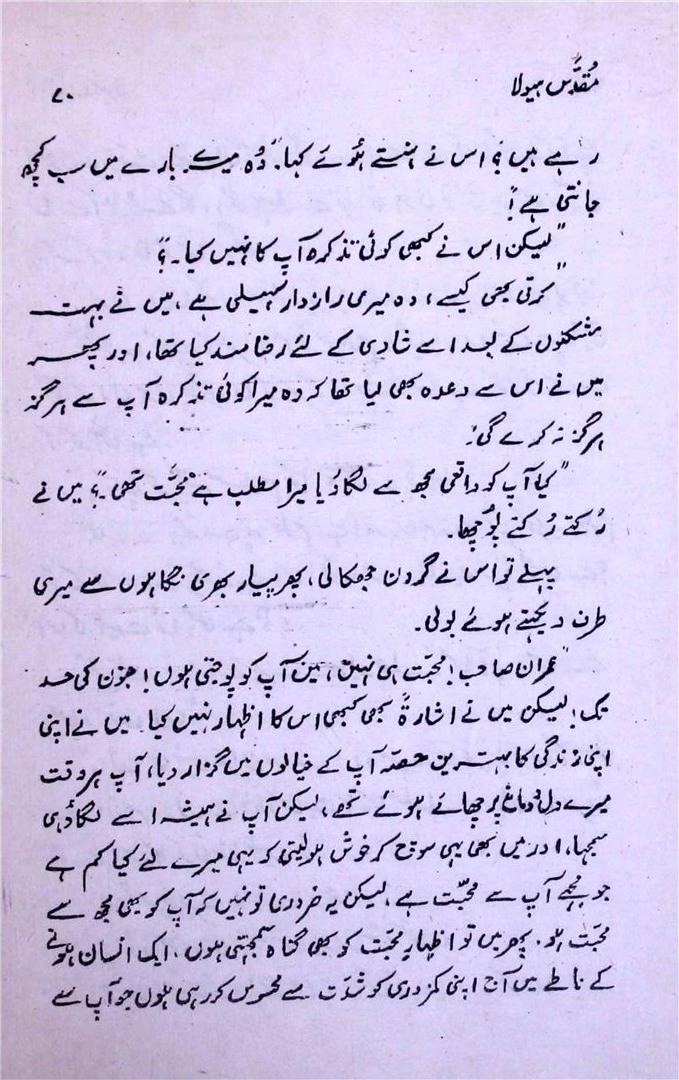 مُقدَّس ہیولا
۷۰
رہے ہیں؟ اس نے ہنستے ہوئے کہا۔ "وُہ میرے بارے میں سب کچھ
جانتی ہے!"
"لیکن اس نے کبھی کوئی تذکرہ آپ کا نہیں کیا۔؟"
"کرتی بھی کیسے، وہ میری رازدار سہیلی ہے، میں نے بہت
مشکلوں کے بعد اسے شادی کے لئے رضا مند کیا تھا، اور پھر
میں نے اس سے وعدہ بھی لیا تھا کہ وہ میرا کوئی تذکرہ آپ سے ہرگز
ہرگز نہ کرے گی۔"
"کیا آپ کو واقعی مجھ سے لگاؤ یا میرا مطلب ہے محبّت تھی۔؟" میں نے
رُکتے رُکتے پوچھا۔
پہلے تو اس نے گردن جھکالی، پھر پیار بھری نگاہوں سے میری
طرف دیکھتے ہوئے بولی۔
"عمران صاحب! محبّت ہی نہیں، میں آپ کو پوجتی ہوں! جنون کی حد
تک! لیکن میں نے اشارۃً بھی کبھی اس کا اظہار نہیں کیا۔ میں نے اپنی
اپنی زندگی کا بہترین حصّہ آپ کے خیالوں میں گزار دیا، آپ ہر وقت
میرے دل و دماغ پر چھائے ہوئے تھے، لیکن آپ نے ہمیشہ اسے لگاؤ ہی
سمجھا، اور میں بھی یہی سوچ کر خوش ہولیتی کہ یہی میرے لئے کیا کم ہے
جو مجھے آپ سے محبّت ہے، لیکن یہ ضروری تو نہیں کہ آپ کو بھی مجھ سے
محبّت ہو۔ پھر میں تو اظہارِ محبّت کو بھی گناہ سمجھتی ہوں۔ ایک انسان ہونے
کے ناطے میں آج اپنی کمزوری کو شدّت سے محسوس کر رہی ہوں جو آپ سے